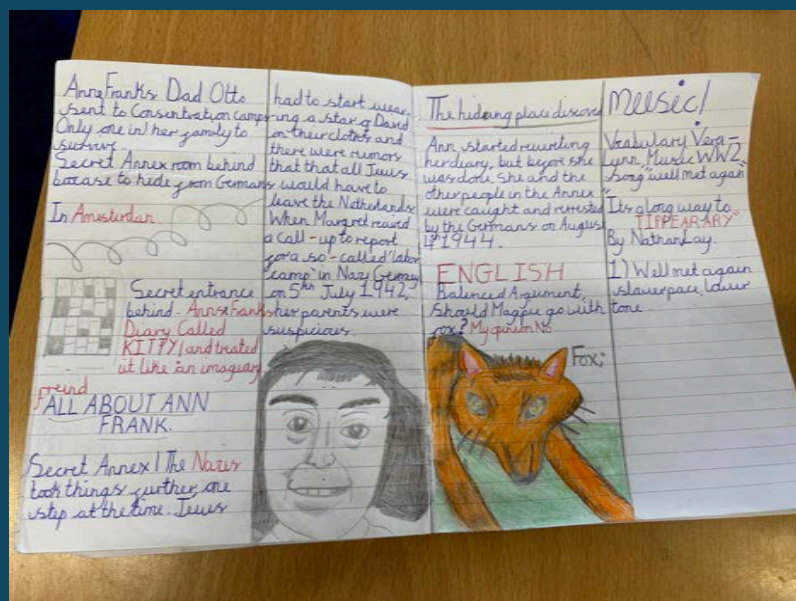 AnneFranks Dad Otto
sent to Consentration camps
Only one in her family to
survive
Secret Annex room behind
bocase to hide from Germans
In Amesterdan
Secret entrance
behind. AnneFranks
Diary Called
KITTY/and treated
it like an imaguary
freind
ALL ABOUT ANN
FRANK.
Secret Annex | The Nazis
took things further one
step at the time. Jews
had to start wear-
ing a star of David
on their cloths and
there were rumors
that that all Jews
would have to
leave the Netherlands
When Margret
a call-up to report
for a so-called 'labor
camp' in Nazy Germany
on 5th July 1942,
her parents were
suspicious.
The hideing place discover
Ann started rewriting
her diary, but before she
was done, she and the
other people in the Annex
were caught and
by the Germans on August
1944.
ENGLISH
Balenced Argument,
should Magpie go with
fox? My opinion No
Fox;
Meesic!
Vocabulary Vera-
Lynn, Music WW2
song "well met again"
Its a long way to
"TIPPEARARY"
By Nathan Lay.
1) Well met again
slower pace, lower
tone.